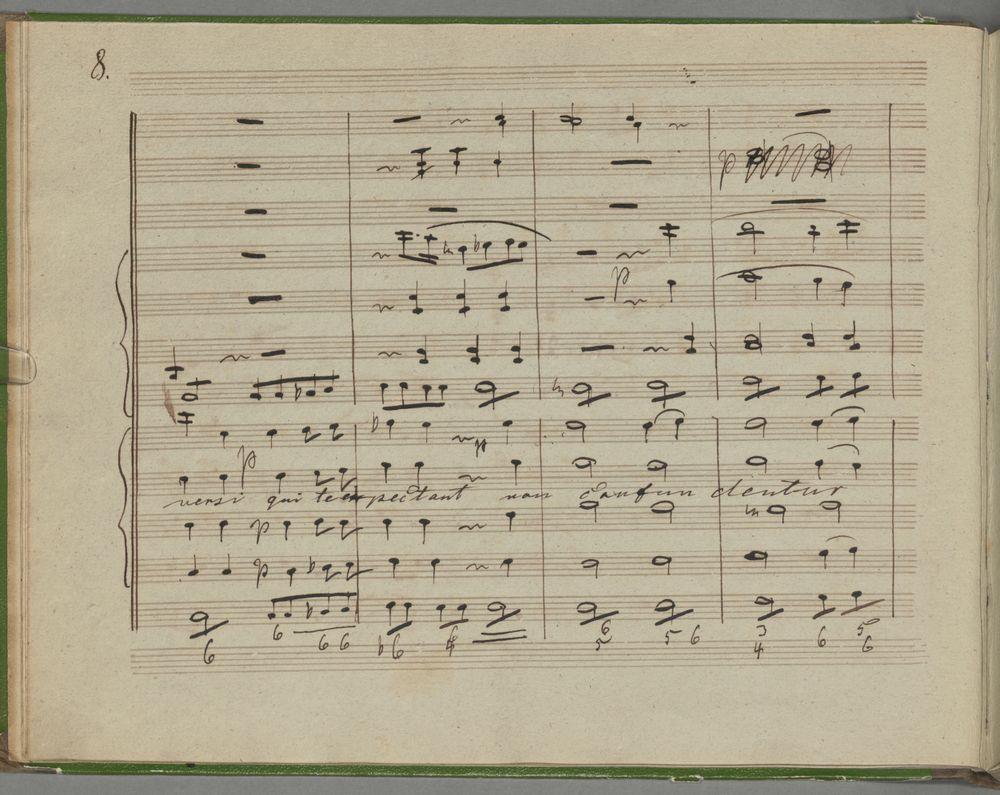 8.
p
p
p
versi qui te expectant non confun dentur
p
p
6 6 6 6 b6 6 5 6 5 6 3 4 6 5 6